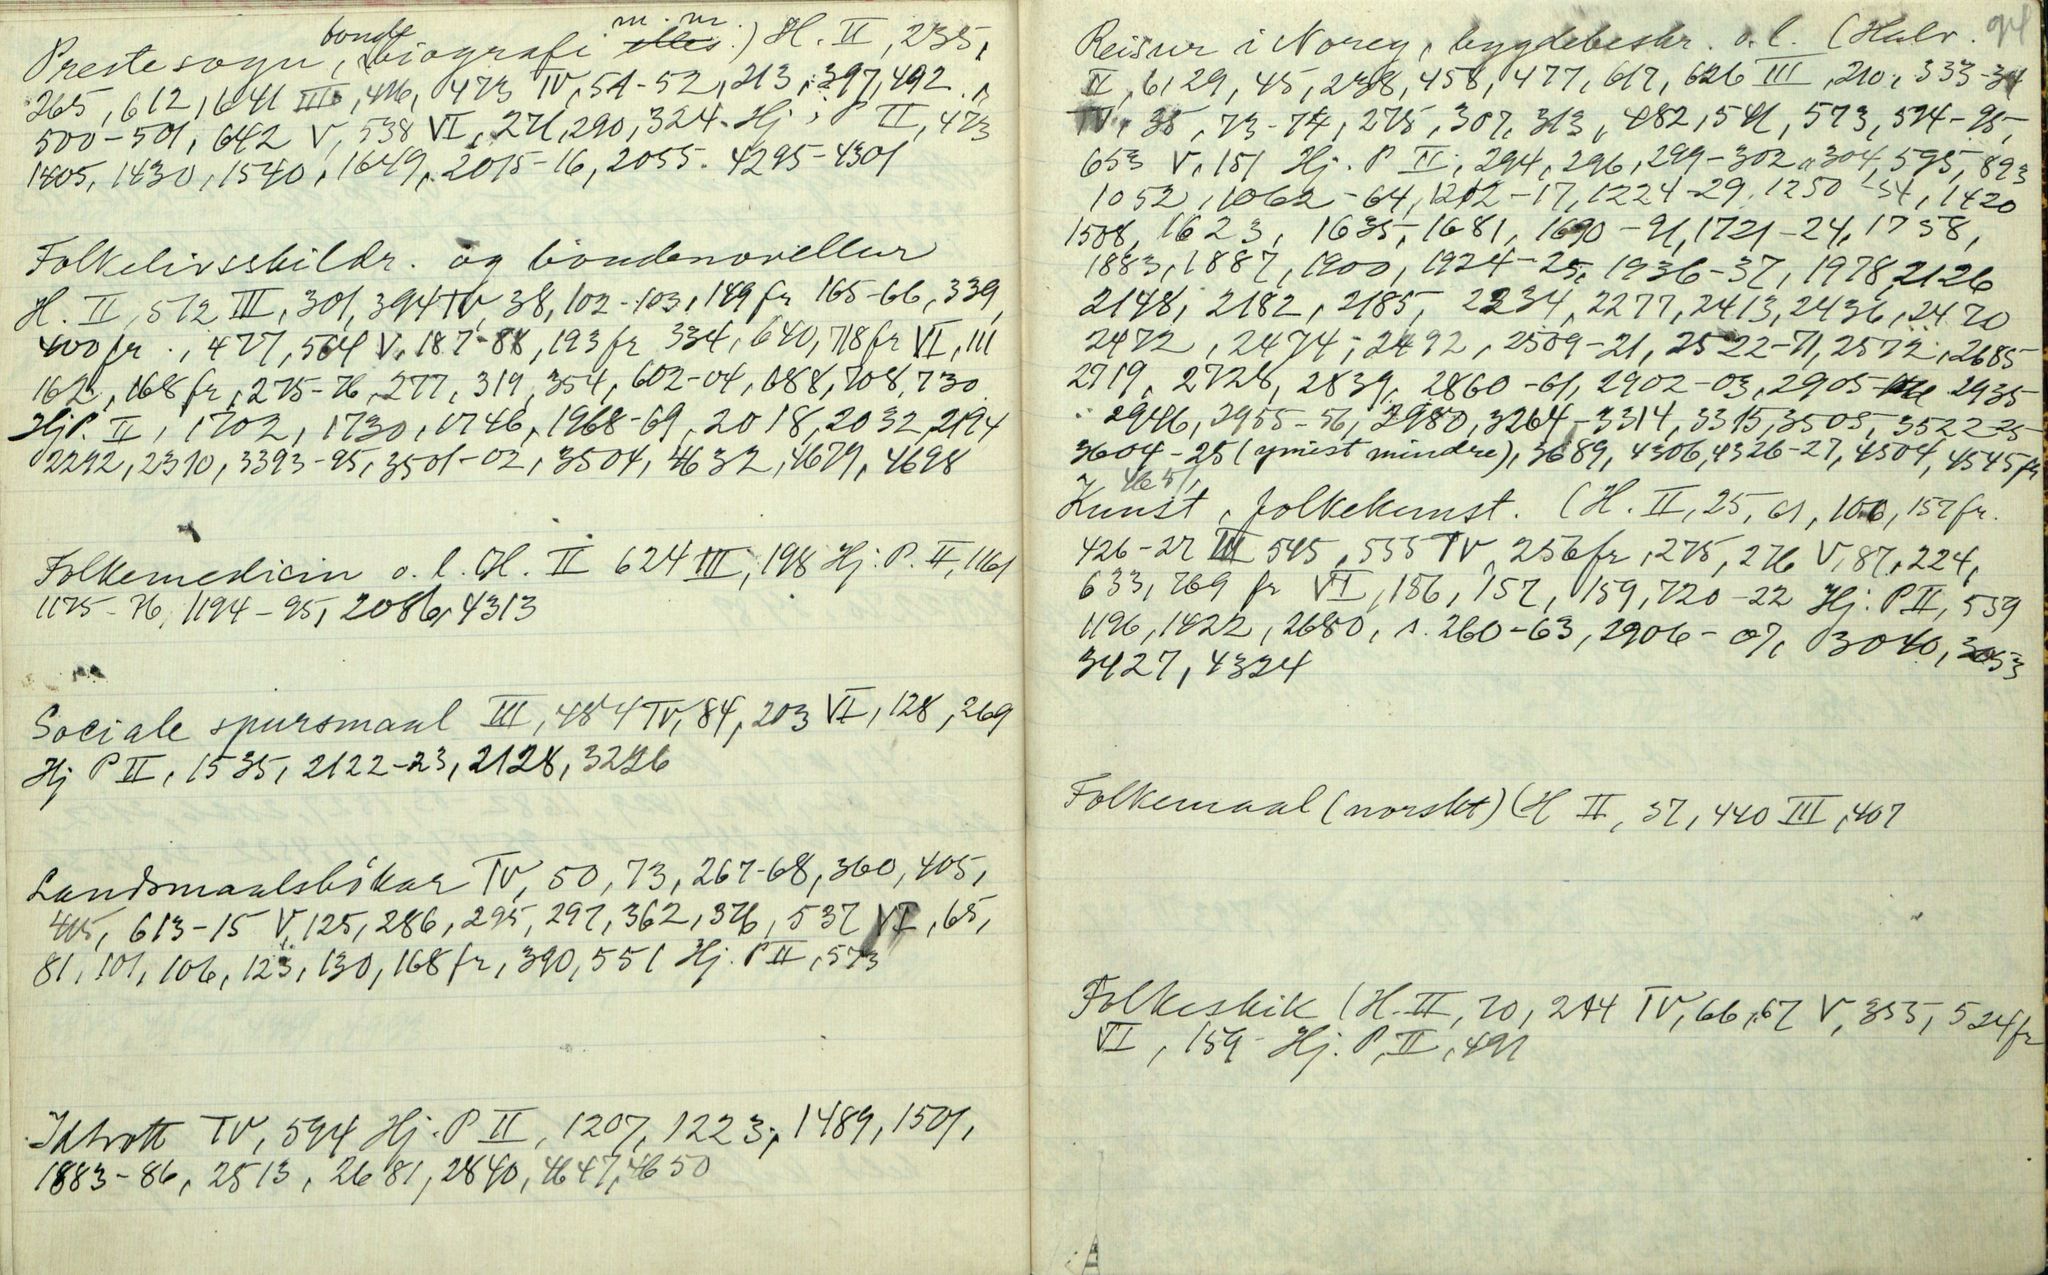 Prestesogn, bondebiografi m.m. H. II, 235,
265, 612, 641 III, 416, 473 IV, 51-52, 213, 397, 492
500-501, 642 V, 538 VI, 271, 290, 324. Hj. P II, 473
1405, 1430, 1540, 1649, 2015-16, 2055. 4295-4301
Folkelivsskildr. og bondenovellur
H. II, 572 III, 301, 394 IV, 38, 102-103, 149 fr 165-66, 339,
400 fr., 477, 564 V, 187-88, 193 fr 334, 640, 718 fr VI, 111
162, 168 fr, 275-76, 277, 319, 354, 602-04, 688, 708, 730
Hj P. II, 1702, 1730, 1746, 1968-69, 2018, 2032, 2194
2292, 2310, 3393-95, 3501-02, 3504, 4632, 4679, 4698
Folkemedicin o.l. H. II 624 III, 198 Hj. P. II, 1161
1175-76, 1194-95, 2086, 4313
Sociale spursmaal III, 484 IV, 84, 203 VI, 128, 269
Hj P II, 1535, 2122-23, 2128, 3226
Landsmaalsbôkar IV, 50, 73, 267-68, 360, 405,
415, 613-15 V, 125, 286, 295, 297, 362, 376, 537 VI, 65,
81, 101, 106, 123, 130, 168 fr, 390, 551 Hj. P II, 573
Idrott IV, 594 Hj. P II, 1207, 1223, 1489, 1501,
1883-86, 2513, 2681, 2840, 4647, 4650
94
Reisur i Noreg, bygdebeskr. o.l. (Halv.
II, 6, 29, 45, 238, 458, 477, 617, 626 III, 210, 333-34
IV, 35, 73-74, 275, 307, 313, 482, 541, 573, 574-95,
653 V, 151 Hj. P II, 294, 296, 299-302, 304, 595, 893
1052, 1062-64, 1212-17, 1224-29, 1250-54, 1420
1508, 1623, 1635, 1681, 1690-91, 1721-24, 1758,
1883, 1887, 1900, 1924-25, 1936-37, 1978, 2126
2148, 2182, 2185, 2234, 2277, 2413, 2436, 2470
2472, 2474, 2492, 2509-21, 2522-71, 2572, 2685
2719, 2728, 2839, 2860-61, 2902-03, 2905 2935
2946, 2955-56, 2980, 3264-3314, 3315, 3505, 3522-25
3604-25 (ymist mindre), 3689, 4306, 4326-27, 4504, 4545 fr
4651,
Kunst, folkekunst. (H. II, 25, 61, 106, 157 fr.
426-27 III 545, 555 IV, 256 fr, 275, 276 V, 87, 224,
633, 769 fr VI, 156, 157, 159, 720-22 Hj. P II, 559
1196, 1422, 2680, s. 260-63, 2906-07, 3040, 3053
3427, 4324
Folkemaal (norskt) (H II, 37, 440 III, 407
Folkeskik (H. II, 70, 244 IV, 66, 67 V, 355, 524 fr
VI, 159 Hj. P. II, 491